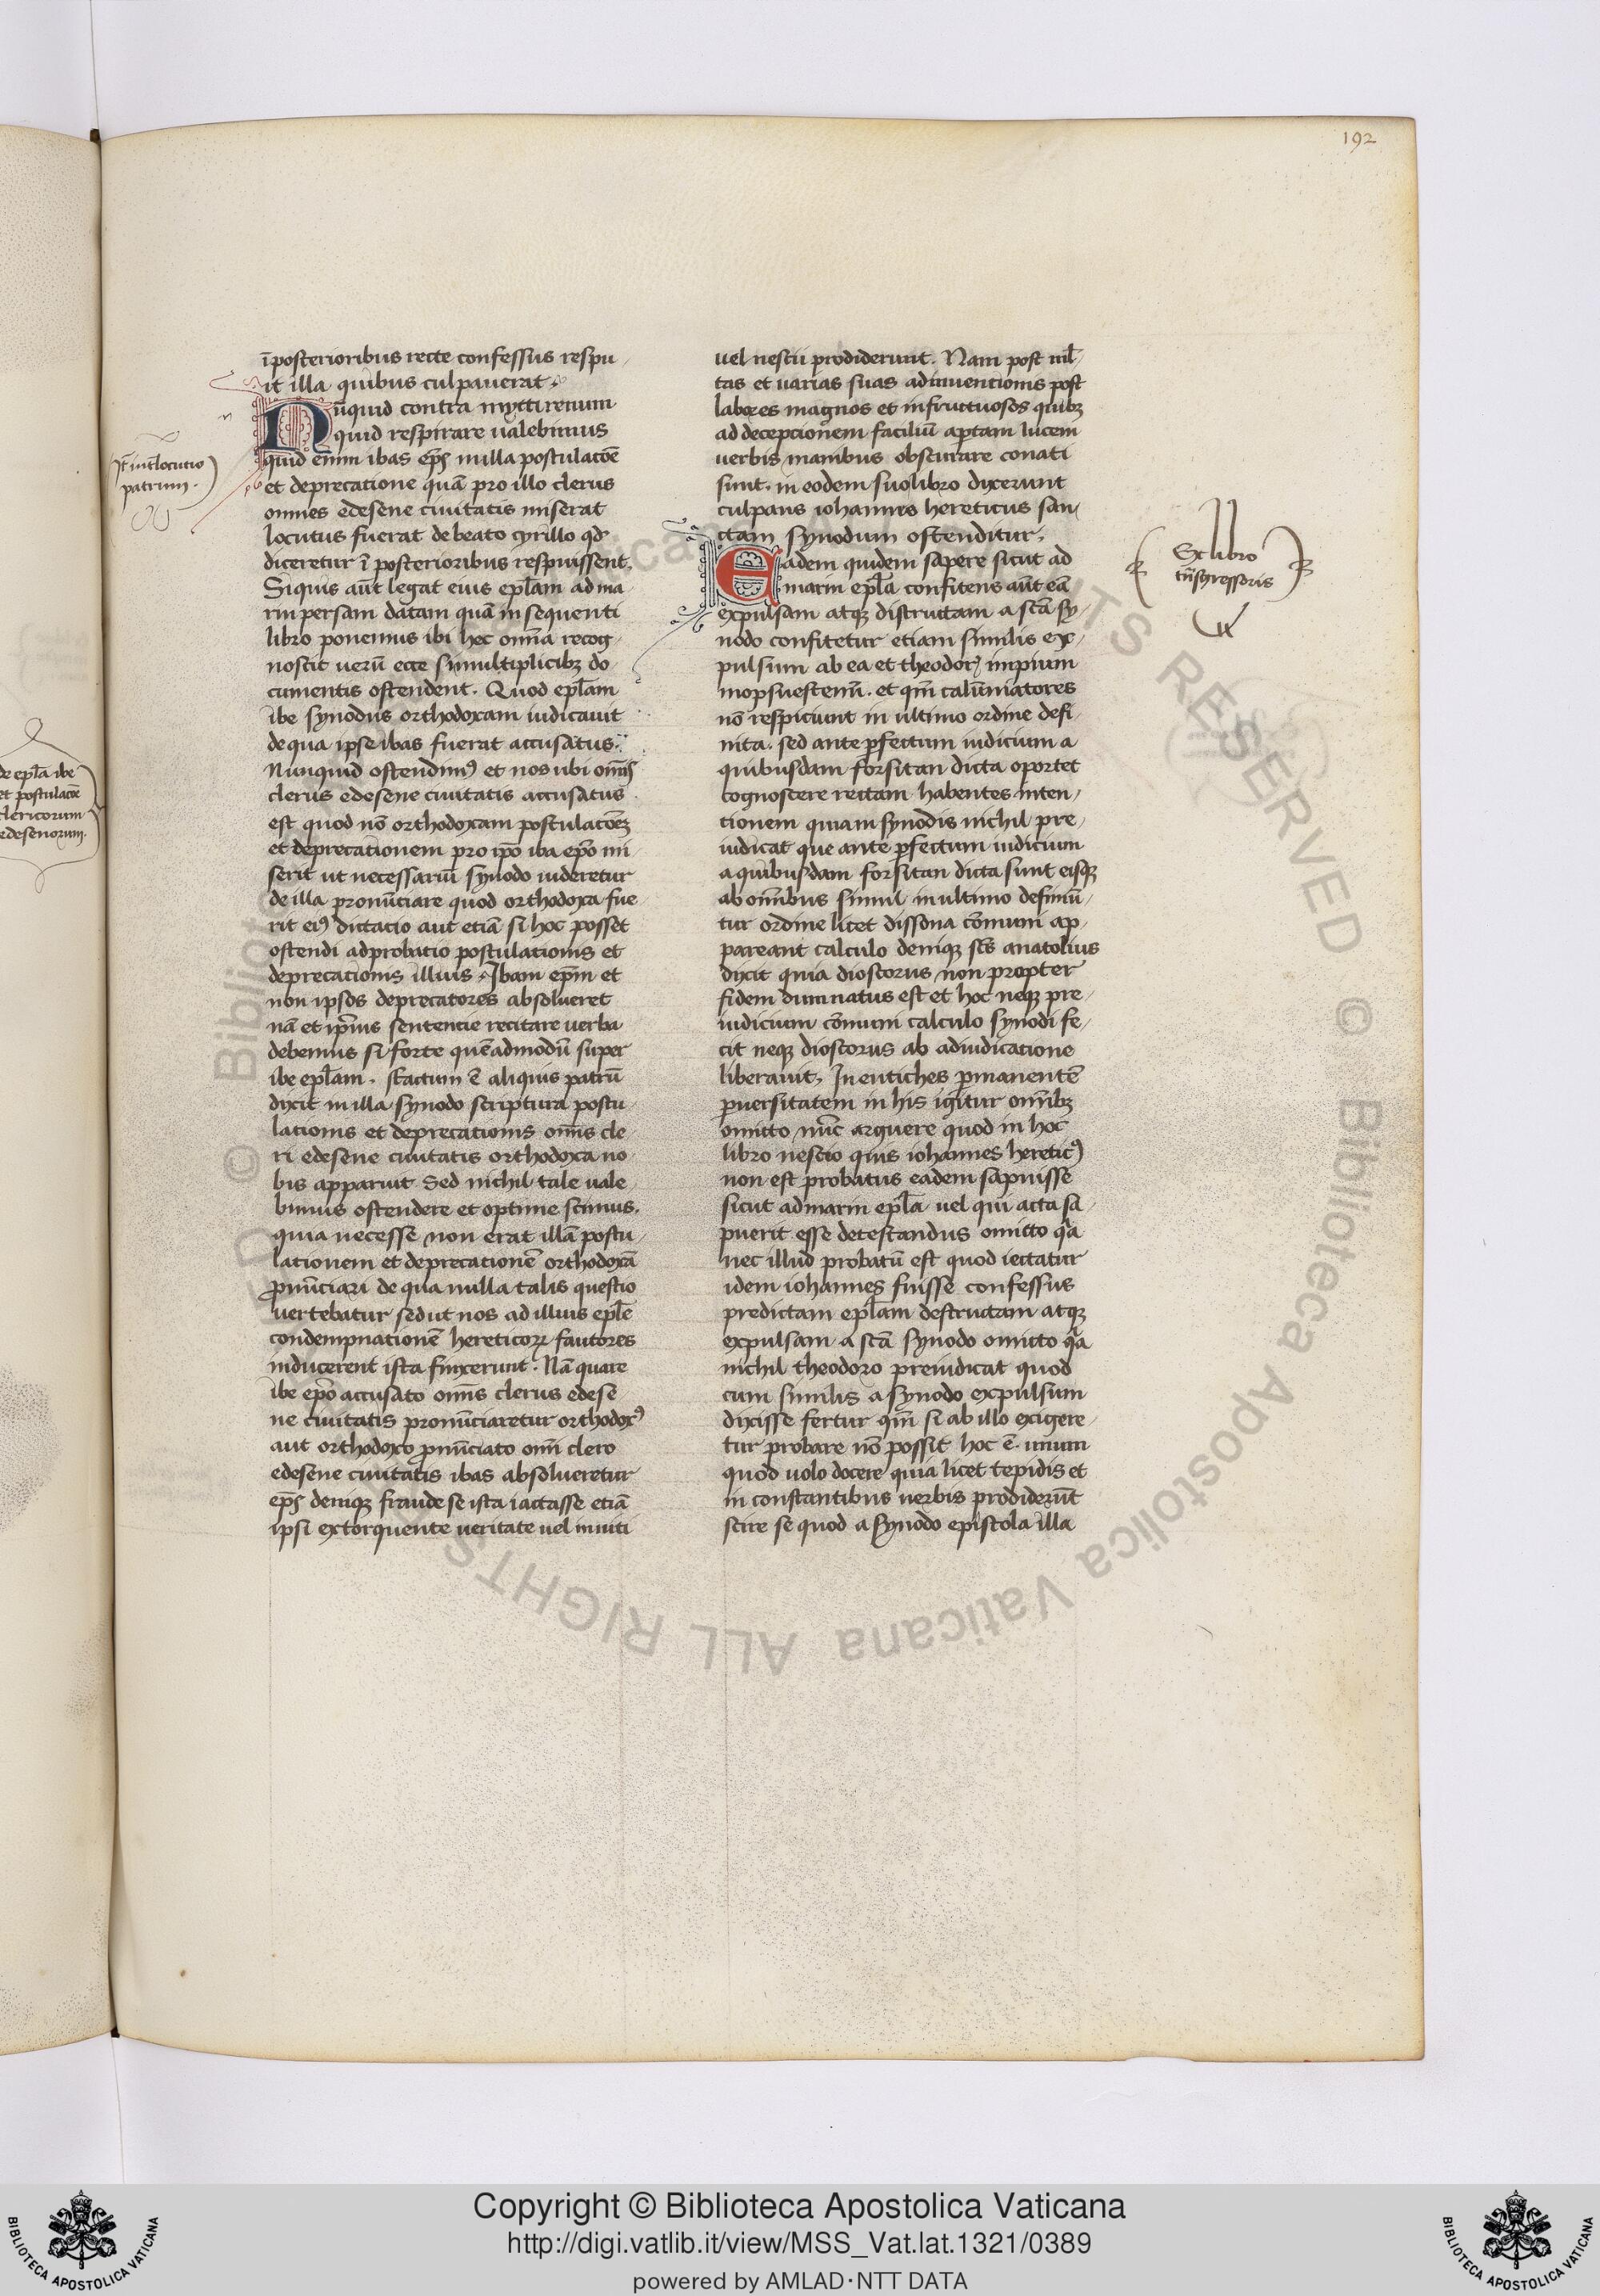 192
ī posterioribus recte confessus respu
it illa quibus culpauerat.
Nūquid contra myctirenum
quid respirare ualebimus
quid enim ibas ep̄s nulla postulacōe
et deprecatione quā pro illo clerus
omnes edesene ciuitatis miserat
locutus fuerat de beato cyrillo qd
diceretur ī posterioribus respuissent.
Siquis aūt legat eius ep̄lam ad ma
rin persam datam quā in sequenti
libro ponemus ibi hec om̄ia recog
noscit uerū ecce simultiplicibꝫ do
cumentis ostendent. Quod ep̄lam
ibe synodus orthodoxam iudicauit
de qua ipse ibas fuerat accusatus.
Nunquid ostendimꝰ et nos ubi om̄s
clerus edesene ciuitatis accusatus
est quod nō orthodoxam postulacōeꝫ
et deprecationem pro ip̄o iba ep̄o mi
serit ut necessariū synodo uideretur
de illa pronūciare quod orthodoxa fue
rit eiꝰ dictacio aut etiā si hoc posset
ostendi adprobatio postulationis et
deprecationis illius. Ibam ep̄m et
non ipsos deprecatores absolueret
nā et ip̄ius sentencie recitare uerba
debemus si forte quēadmodū super
ibe ep̄lam. factum ē aliquis patrū
dixit in illa synodo scriptura postu
lationis et deprecationis om̄is cle
ri edesene ciuitatis orthodoxa no
bis apparuit Sed nichil tale uale
bimus ostendere et optime scimus.
quia necesse non erat illā postu
lationem et deprecationē orthodoxā
ꝓnūciari de qua nulla talis questio
uertebatur sed ut nos ad illius ep̄le
condempnationē hereticoꝝ fautores
inducerent ista finxerunt. Nā quare
ibe ep̄o accusato om̄is clerus edese
ne ciuitatis pronūciaretur orthodoxꝰ
aut orthodoxo ꝓnūciato om̄i clero
edesene ciuitatis ibas absolueretur
ep̄s deniqꝫ fraude se ista iactasse etiā
ipsi extorquente ueritate uel inuiti
uel nescii prodiderunt. Nam post ml̄
tas et uarias suas adinuentionis post
labores magnos et infructuosos quibꝫ
ad decepcionem faciliū aꝑtam lucem
uerbis manibus obscurare conati
sunt. in eodem suo libro dixerunt
culpans iohannes hereticus san
ctam synodum ostenditur.
Eadem quidem sapere sicut ad
marin ep̄la confitens aūt eā
expulsam atqꝫ distructam a scā sy
nodo confitetur etiam similis ex
pulsum ab ea et theodorꝰ impium
mopsuestenū. et qm̄ calūniatores
nō respiciunt in ultimo ordine defi
nita. sed ante ꝑfectum iudicium a
quibusdam forsitan dicta oportet
cognoscere rectam habentes inten
tionem quiam synodis nichil pre
iudicat que ante ꝑfectum iudicium
a quibusdam forsitan dicta sunt eisqꝫ
ab om̄ibus simul in ultimo definiū
tur ordine licet dissona cōmuni ap
pareant calculo deniqꝫ scs̄ anatolius
dixit quia dioscorus non propter
fidem dumnatus est et hoc neqꝫ pre
iudicium cōmuni calculo synodi fe
cit neqꝫ dioscorus ab adiudicatione
liberauit. In eutiches ꝑmanentē
ꝑuersitatem in his igitur om̄ibꝫ
omitto nūc arguere quod in hoc
libro nescio quis iohannes hereticꝰ
non est probatus eadem sapuisse
sicut ad marin ep̄la uel qui acta sa
puerit esse detestandus omitto qa
nec illud probatū est quod iectatur
idem iohannes fuisse confessus
predictam ep̄lam destructam atqꝫ
expulsam a scā synodo omitto qa
nichil theodoro preiudicat quod
cum similis a synodo expulsum
dixisse fertur qm̄ si ab illo exigere
tur probare nō possit hoc ē unum
quod uolo docere quia licet tepidis et
in constantibus uerbis prodiderūt
scire se quod a synodo epistola illa
int̄locutio
patrum.
Ex libro
de ep̄la ibe
et postulacōe
clericorum
edesenorum.
© Biblioteca Apostolica Vaticana ALL RIGHTS RESERVED
Copyright © Biblioteca Apostolica Vaticana
http://digi.vatlib.it/view/MSS_Vat.lat.1321/0389
powered by AMLAD·NTT DATA
BIBLIOTECA APOSTOLICA VATICANA
BIBLIOTECA APOSTOLICA VATICANA